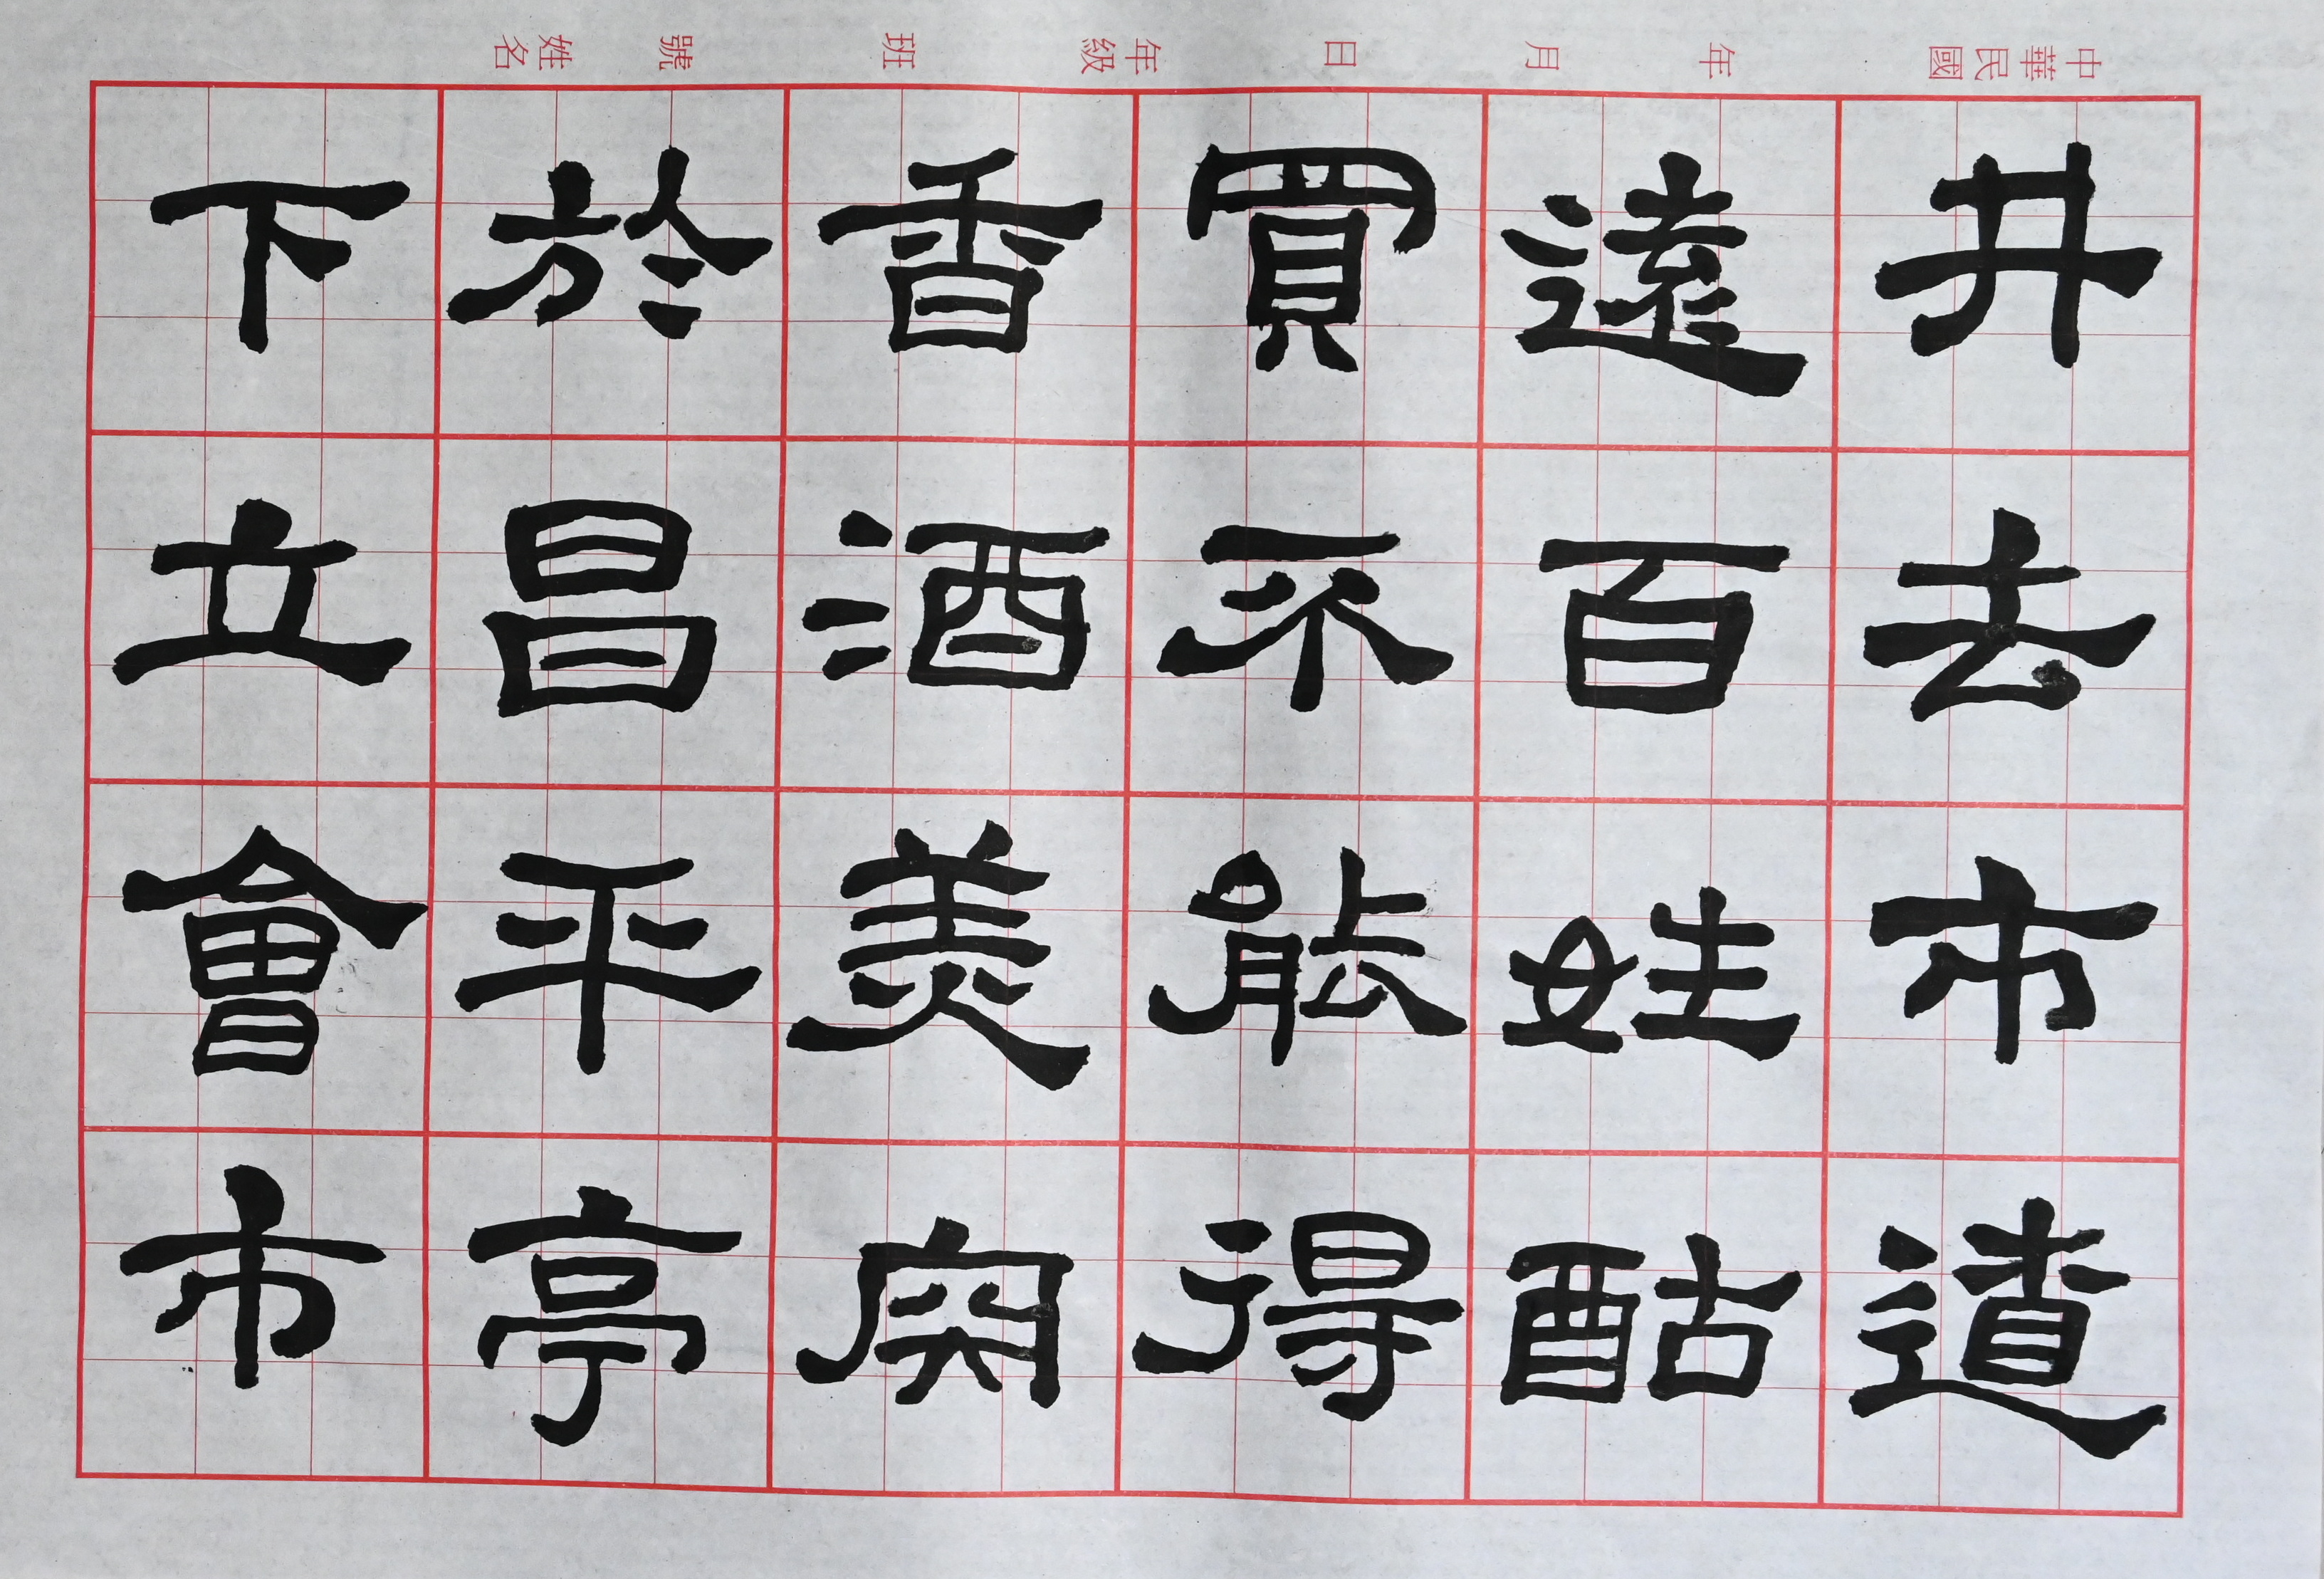 中華民國 年 月 日 年級 班 號 姓名
井去市遼
遠百姓酤
買不能得
香酒美肉
於昌平亭
下立會市